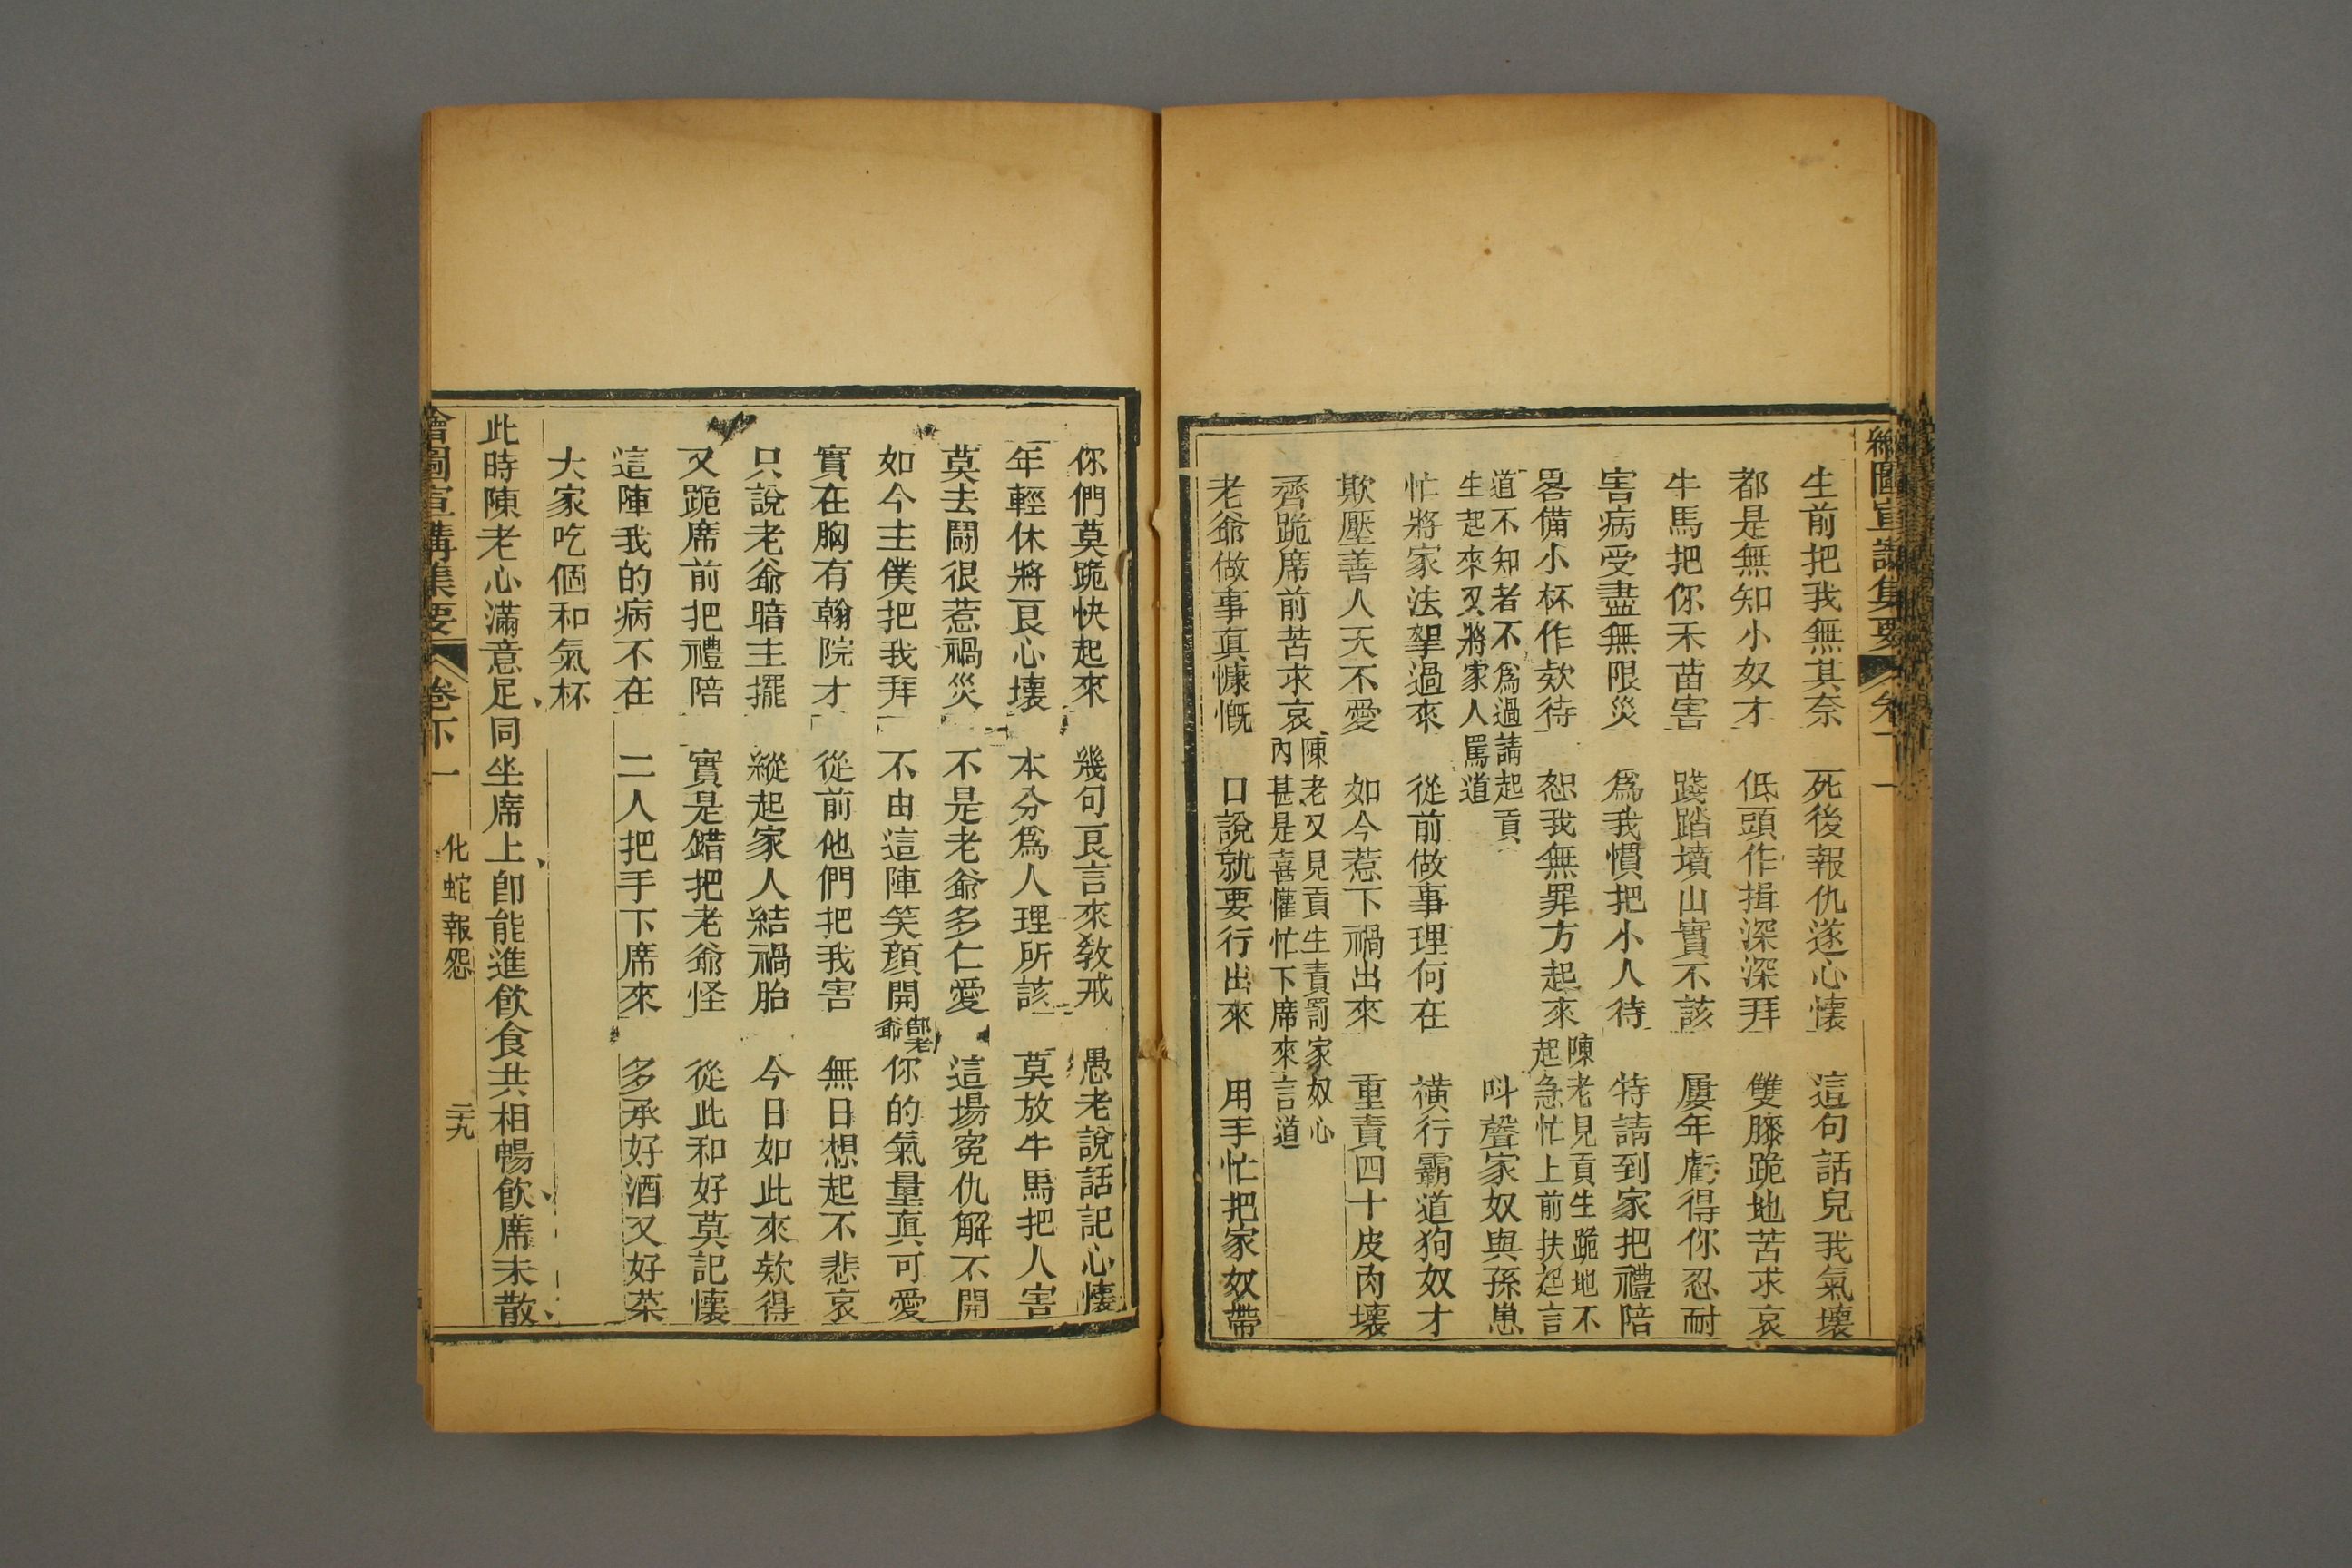 繪圖宣講集要 卷下一
生前把我無其奈 死後報仇遂心懷 這句話兒我氣壞
都是無知小奴才 低頭作揖深深拜 雙膝跪地苦求哀
牛馬把你禾苗害 踐踏墳山實不該 屢年虧得你忍耐
害病受盡無限災 爲我慣把小人待 特請到家把禮陪
畧備小杯作欵待 恕我無罪方起來 陳老見貢生跪地不起急忙上前扶起言
道不知者不爲過請起貢生起來又將家人罵道 呌聲家奴與孫崽
忙將家法拏過來 從前做事理何在 橫行霸道狗奴才
欺壓善人天不愛 如今惹下禍出來 重責四十皮肉壞
齊跪席前苦求哀 陳老又見貢生責罰家奴心內甚是喜懽忙下席來言道
老爺做事真慷慨 口說就要行出來 用手忙把家奴帶
你們莫跪快起來 幾句良言來教戒 愚老說話記心懷
年輕休將良心壞 本分爲人理所該 莫放牛馬把人害
莫去鬪很惹禍災 不是老爺多仁愛 這場寃仇解不開
如今主僕把我拜 不由這陣笑顔開 郜老爺 你的氣量真可愛
實在胸有翰院才 從前他們把我害 無日想起不悲哀
只說老爺暗主擺 縱起家人結禍胎 今日如此來欵得
又跪席前把禮陪 實是錯把老爺怪 從此和好莫記懷
這陣我的病不在 二人把手下席來 多承好酒又好茶
大家吃個和氣杯
此時陳老心滿意足同坐席上卽能進飲食共相暢飲席未散
繪圖宣講集要 卷下一 化蛇報怨 二十九